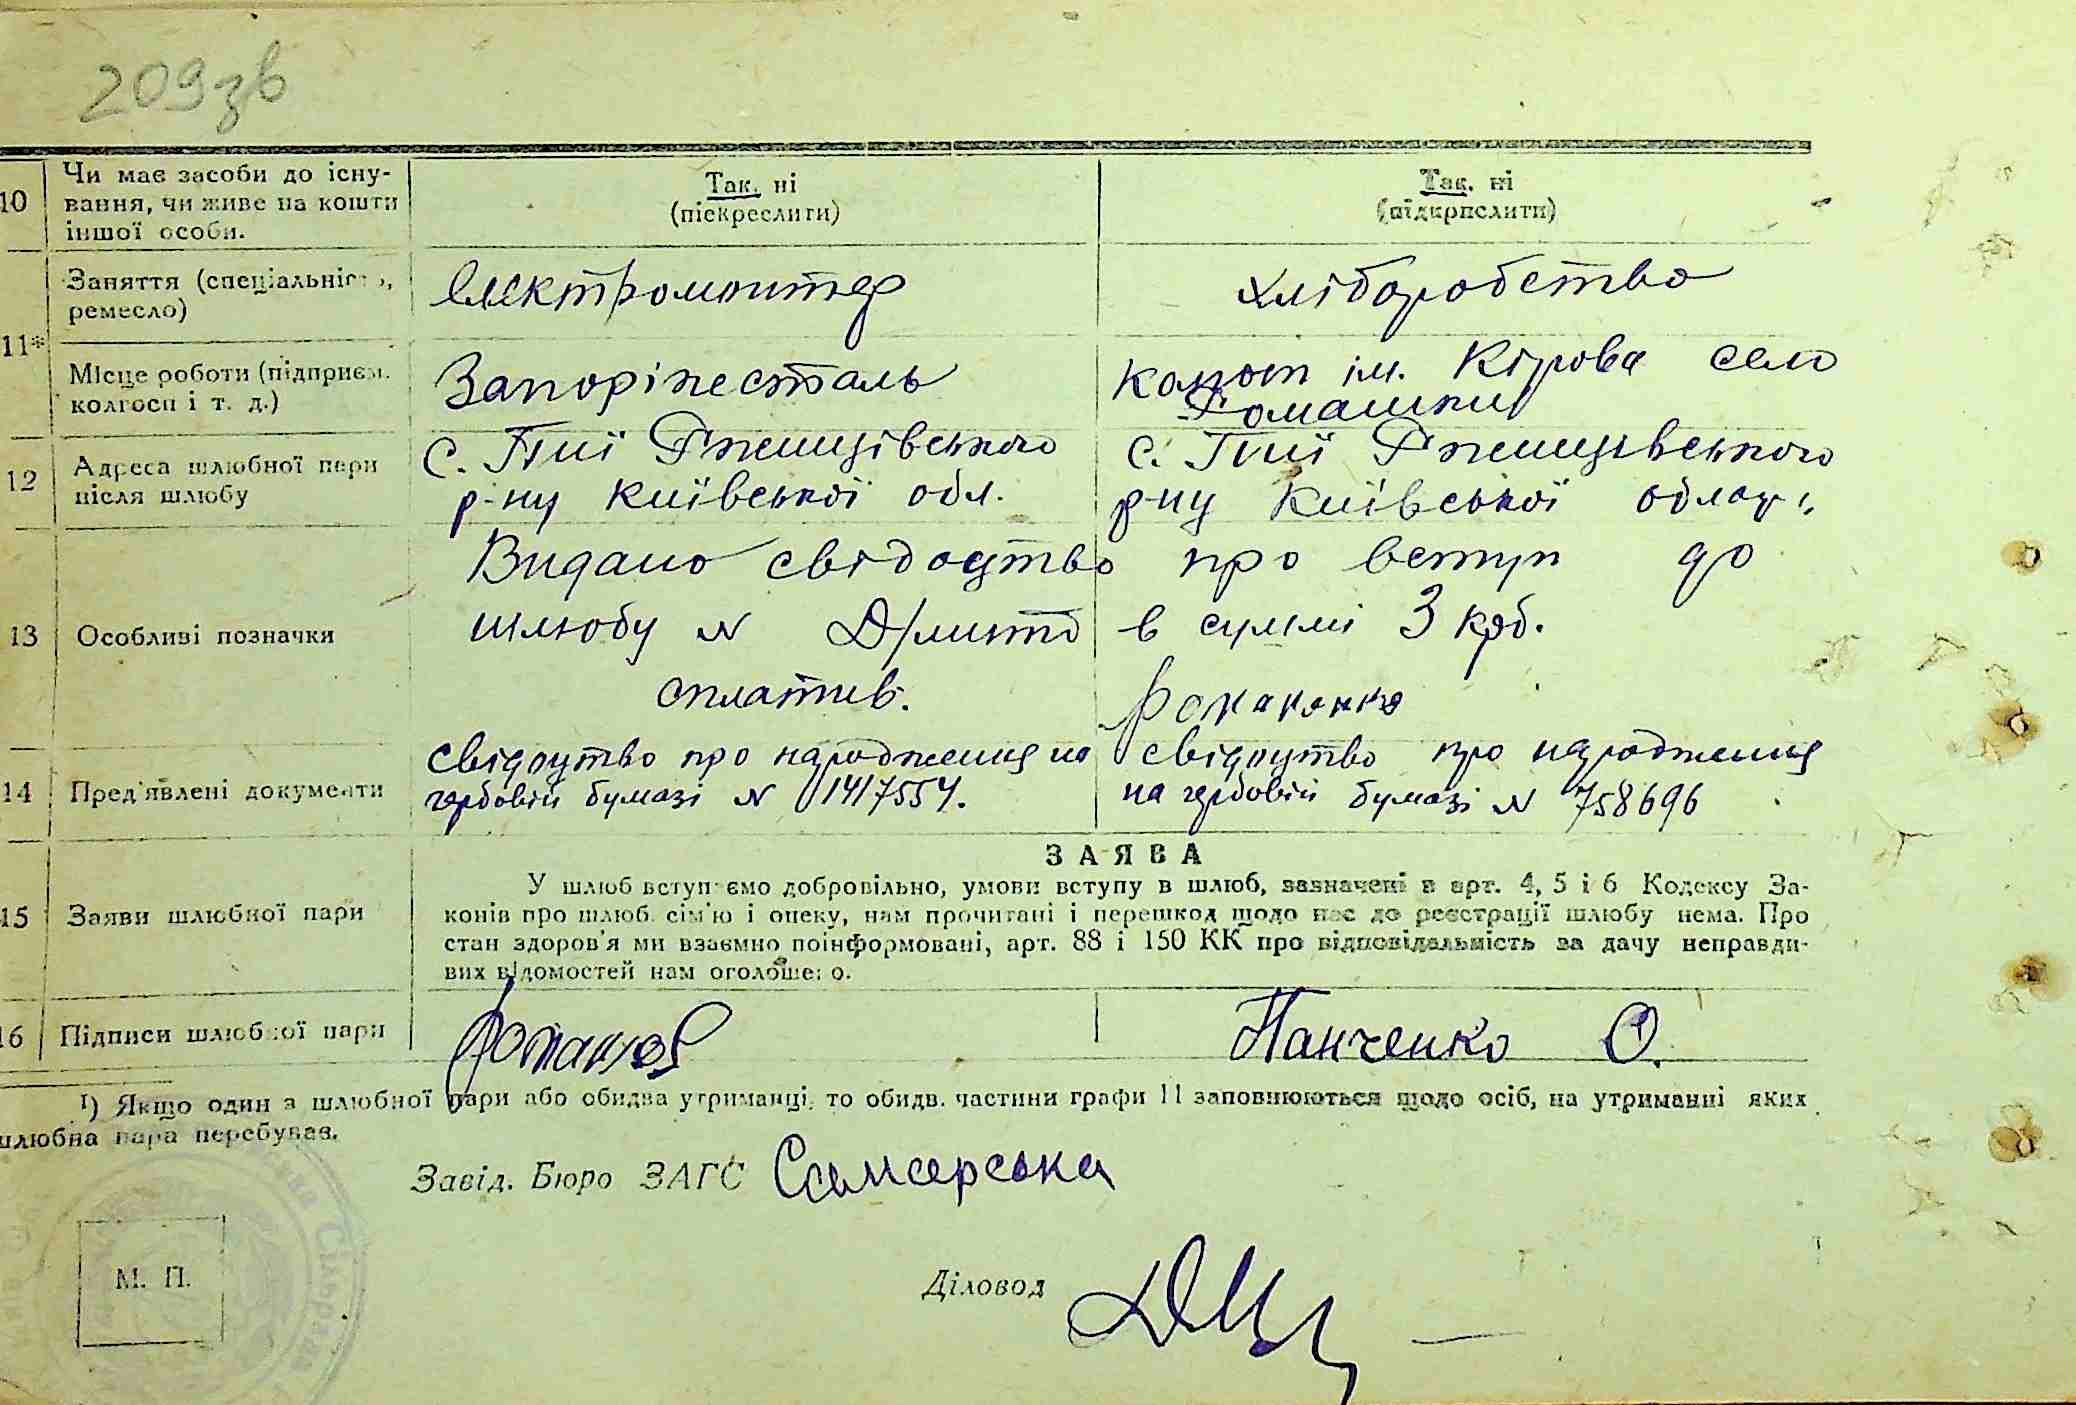 209зв
10 Чи має засоби до існу-
вання, чи живе на кошти
іншої особи.
Так. ні
(підкреслити)
Так. ні
(підкреслити)
11* Заняття (спеціальність,
ремесло)
Електромонтер
хліборобство
Місце роботи (підприєм.
колгосп і т. д.)
Запоріжсталь
колгосп ім. Кірова село
Ромашки
12 Адреса шлюбної пари
після шлюбу
с. Пії Ржищівського
р-ну Київської обл.
с. Пії Ржищівського
р-ну Київської област.
13 Особливі позначки
Видано свідоцтво про вступ до
шлюбу N в суммі 3 крб.
сплатив.
14 Пред'явлені документи
свідоцтво про народження на
гербовій бумазі N 1417554.
свідоцтво про народження
на гербовій бумазі N 758696
15 Заяви шлюбної пари
ЗАЯВА
У шлюб вступаємо добровільно, умови вступу в шлюб, зазначені в арт. 4, 5 і 6 Кодексу За-
конів про шлюб. сім'ю і опеку, нам прочитані і перешкод щодо нас до реєстрації шлюбу нема. Про
стан здоров'я ми взаємно поінформовані, арт. 88 і 150 КК про відповідальність за дачу неправди-
вих відомостей нам оголошено.
16 Підписи шлюбної пари
Панченко О.
1) Якщо один з шлюбної пари або обидва утриманці, то обидв. частини графи 11 заповнюються щодо осіб, на утриманні яких
шлюбна пара перебував.
Завід. Бюро ЗАГС
Діловод
М. П.
Сільрада